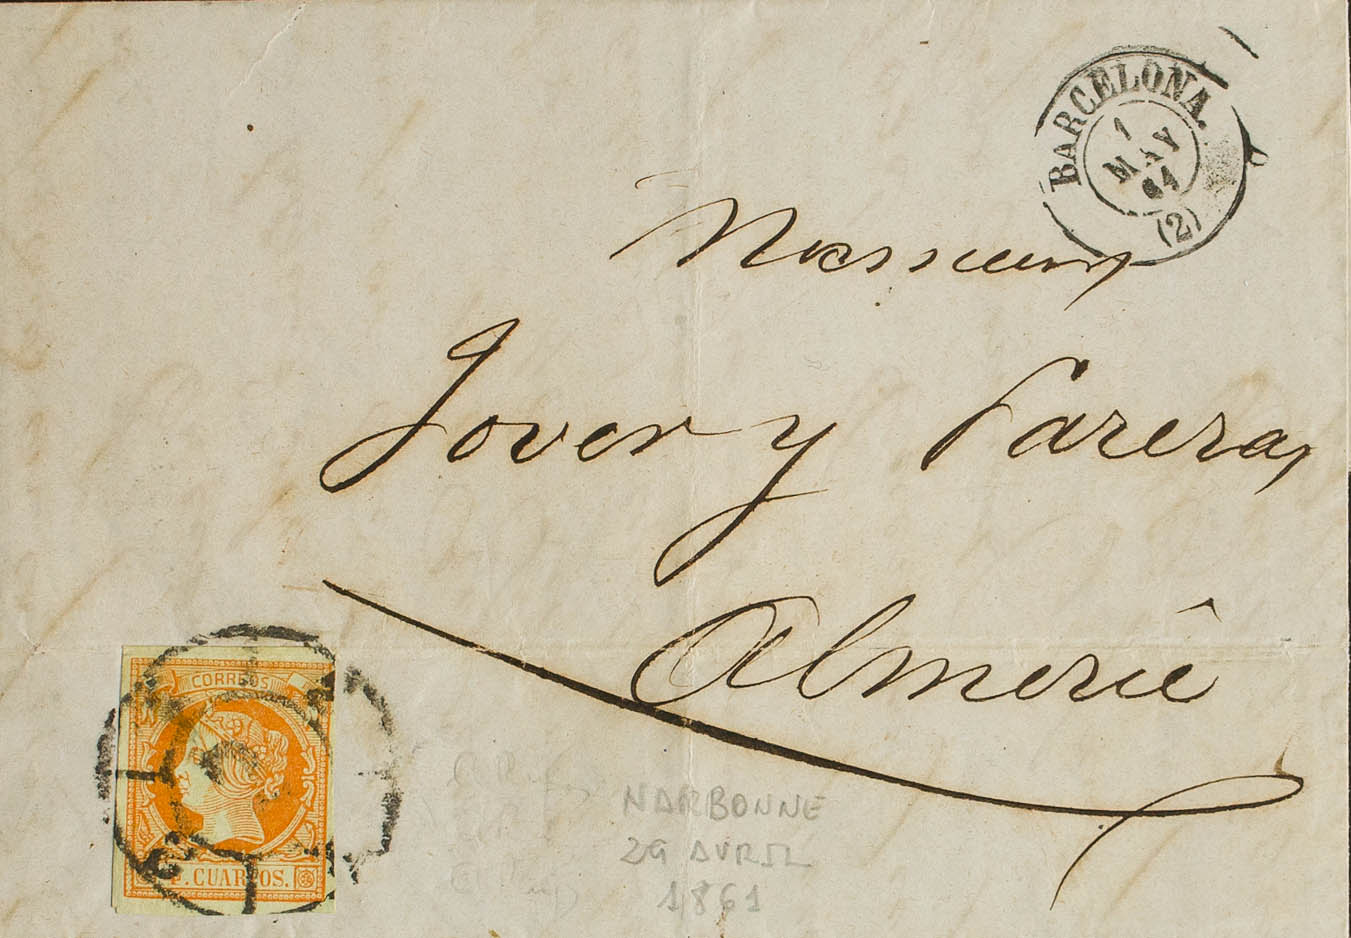 BARCELONA.
1 MAY 61
(2)
Messieurs
Jover y Parera,
Almerie
CORREOS
4. CUARTOS.
NARBONNE
29 AVRIL
1861